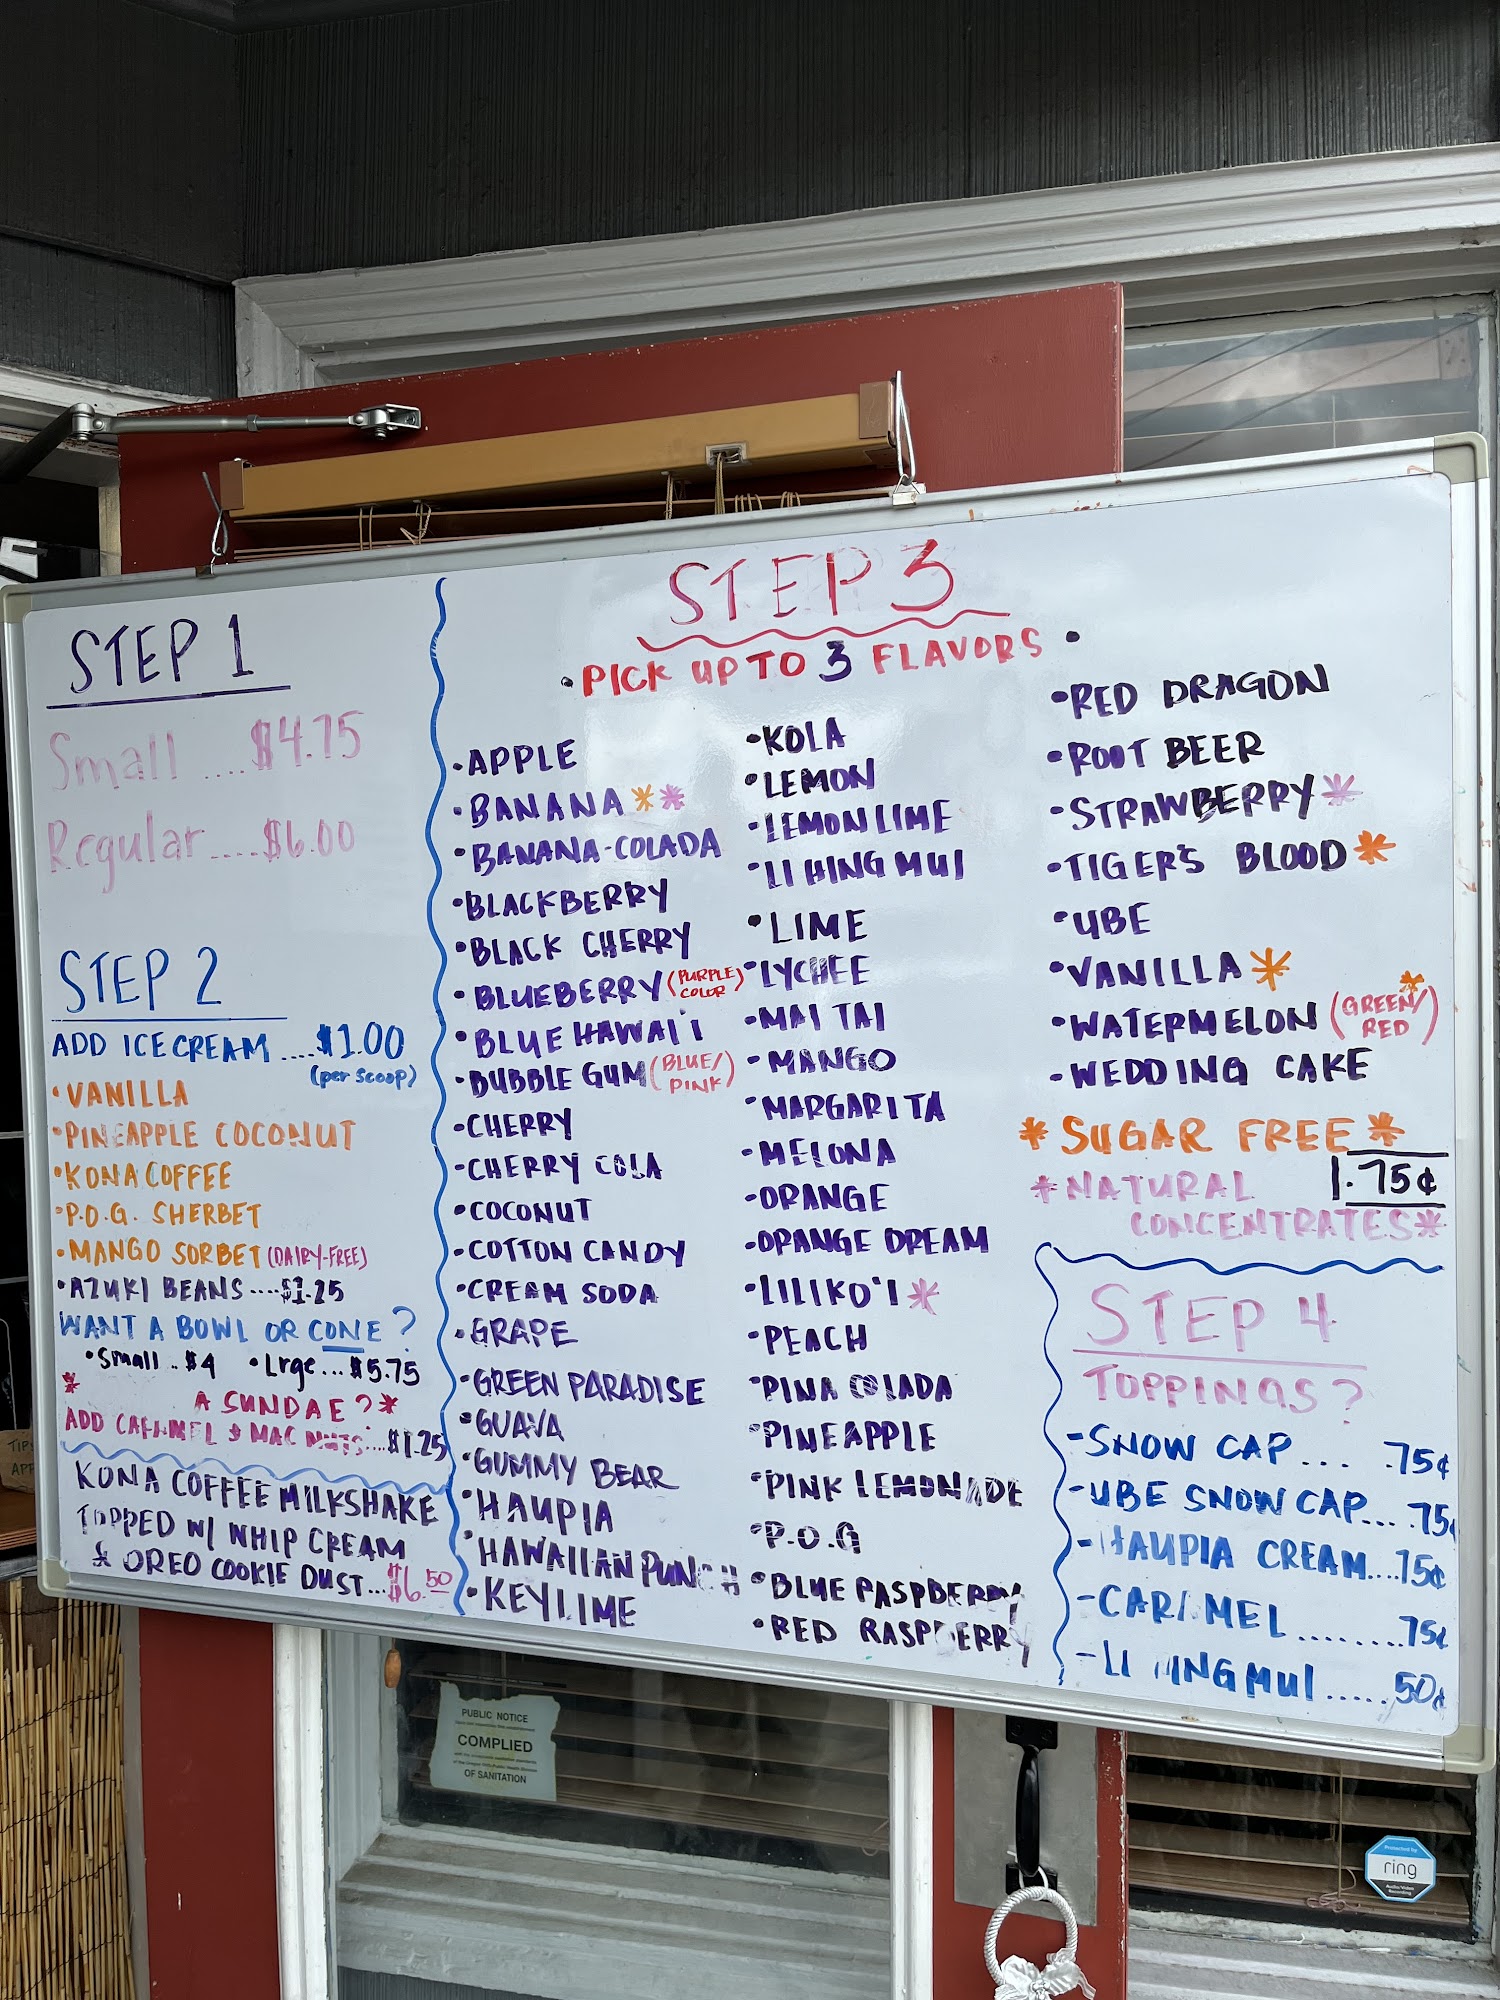 STEP 1
Small ....$4.75
Regular....$6.00
STEP 2
ADD ICE CREAM ....$1.00
(per scoop)
•VANILLA
•PINEAPPLE COCONUT
•KONA COFFEE
•P.O.G. SHERBET
•MANGO SORBET (DAIRY-FREE)
•AZUKI BEANS....$1.25
WANT A BOWL OR CONE?
•Small..$4 •Lrge...$5.75
* A SUNDAE?*
ADD CARAMEL & MAC NUTS...$1.25
KONA COFFEE MILKSHAKE
TOPPED W/ WHIP CREAM
& OREO COOKIE DUST...$6.50
STEP 3
•PICK UP TO 3 FLAVORS •
•APPLE
•BANANA**
•BANANA-COLADA
•BLACKBERRY
•BLACK CHERRY
•BLUEBERRY (PURPLE COLOR)
•BLUE HAWAI'I
•BUBBLE GUM (BLUE/PINK)
•CHERRY
•CHERRY COLA
•COCONUT
•COTTON CANDY
•CREAM SODA
•GRAPE
•GREEN PARADISE
•GUAVA
•GUMMY BEAR
•HAUPIA
•HAWAIIAN PUNCH
•KEYLIME
•KOLA
•LEMON
•LEMON LIME
•LI HING MUI
•LIME
•LYCHEE
•MAI TAI
•MANGO
•MARGARITA
•MELONA
•ORANGE
•ORANGE DREAM
•LILIKO'I*
•PEACH
•PINA COLADA
•PINEAPPLE
•PINK LEMONADE
•P.O.G
•BLUE RASPBERRY
•RED RASPBERRY
•RED DRAGON
•ROOT BEER
•STRAWBERRY*
•TIGER'S BLOOD*
•UBE
•VANILLA*
•WATERMELON (GREEN/RED)*
•WEDDING CAKE
*SUGAR FREE*
1.75¢
*NATURAL
CONCENTRATES*
STEP 4
TOPPINGS?
-SNOW CAP... .75¢
-UBE SNOW CAP... .75¢
-HAUPIA CREAM....75¢
-CARAMEL........75¢
-LI HING MUI.....50¢
PUBLIC NOTICE
COMPLIED
OF SANITATION
Protected by
ring
Audio/Video
Recording